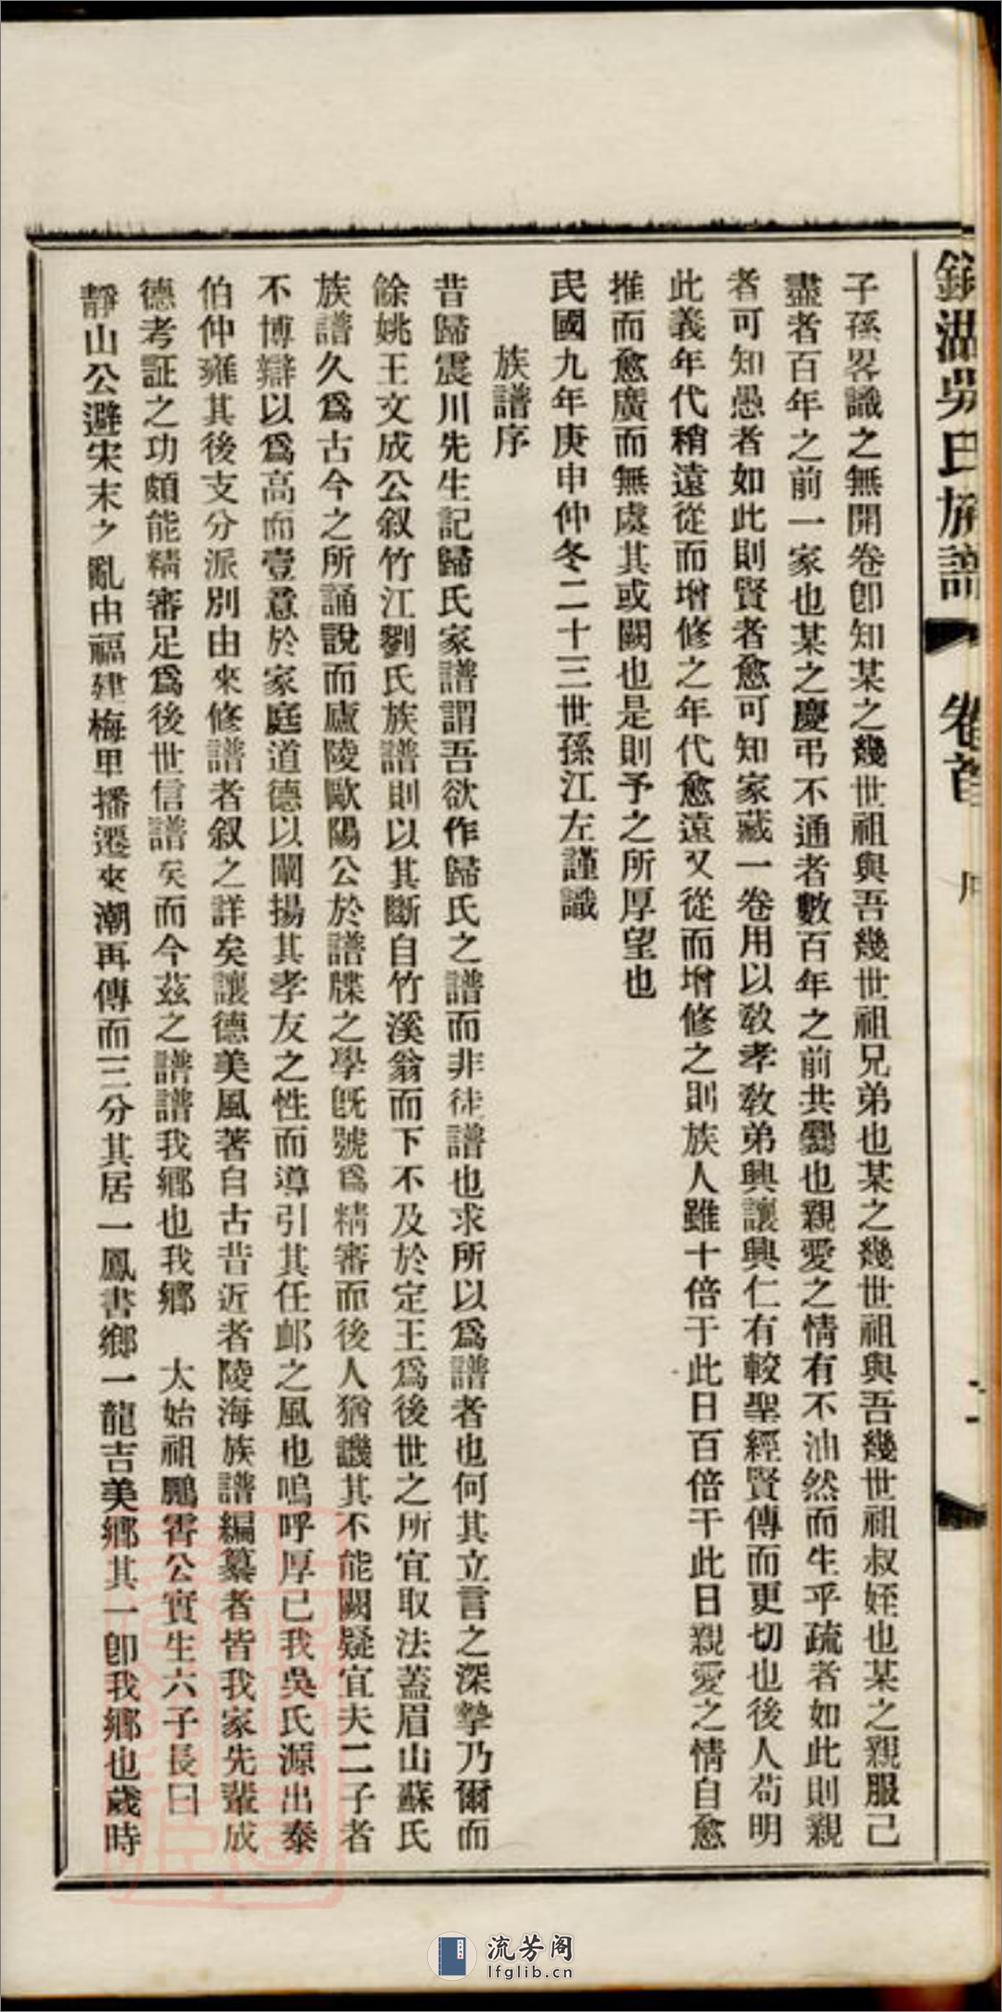 吳氏族譜 卷首
子孫畧識之無開卷卽知某之幾世祖與吾幾世祖兄弟也某之幾世祖與吾幾世祖叔姪也某之親服已
盡者百年之前一家也某之慶弔不通者數百年之前共爨也親愛之情有不油然而生乎疏者如此則親
者可知愚者如此則賢者愈可知家藏一卷用以敎孝敎弟興讓興仁有較聖經賢傳而更切也後人苟明
此義年代稍遠從而增修之年代愈遠又從而增修之則族人雖十倍于此日百倍于此日親愛之情自愈
推而愈廣而無處其或闕也是則予之所厚望也
民國九年庚申仲冬二十三世孫江左謹識
族譜序
昔歸震川先生記歸氏家譜謂吾欲作歸氏之譜而非徒譜也求所以爲譜者也何其立言之深摯乃爾而
餘姚王文成公叙竹江劉氏族譜則以其斷自竹溪翁而下不及於定王爲後世之所宜取法蓋眉山蘇氏
族譜久爲古今之所誦說而廬陵歐陽公於譜牒之學旣號爲精審而後人猶譏其不能闕疑宜夫二子者
不博辯以爲高而壹意於家庭道德以闡揚其孝友之性而導引其任卹之風也嗚呼厚已我吳氏源出泰
伯仲雍其後支分派別由來修譜者叙之詳矣讓德美風著自古昔近者陵海族譜編纂者皆我家先輩成
德考証之功頗能精審足爲後世信譜矣而今茲之譜譜我鄉也我鄉 太始祖鵬霄公實生六子長曰
靜山公避宋末之亂由福建梅里播遷來潮再傳而三分其居一鳳書鄉一龍吉美鄉其一卽我鄉也歲時
流芳阁
lfglib.cn